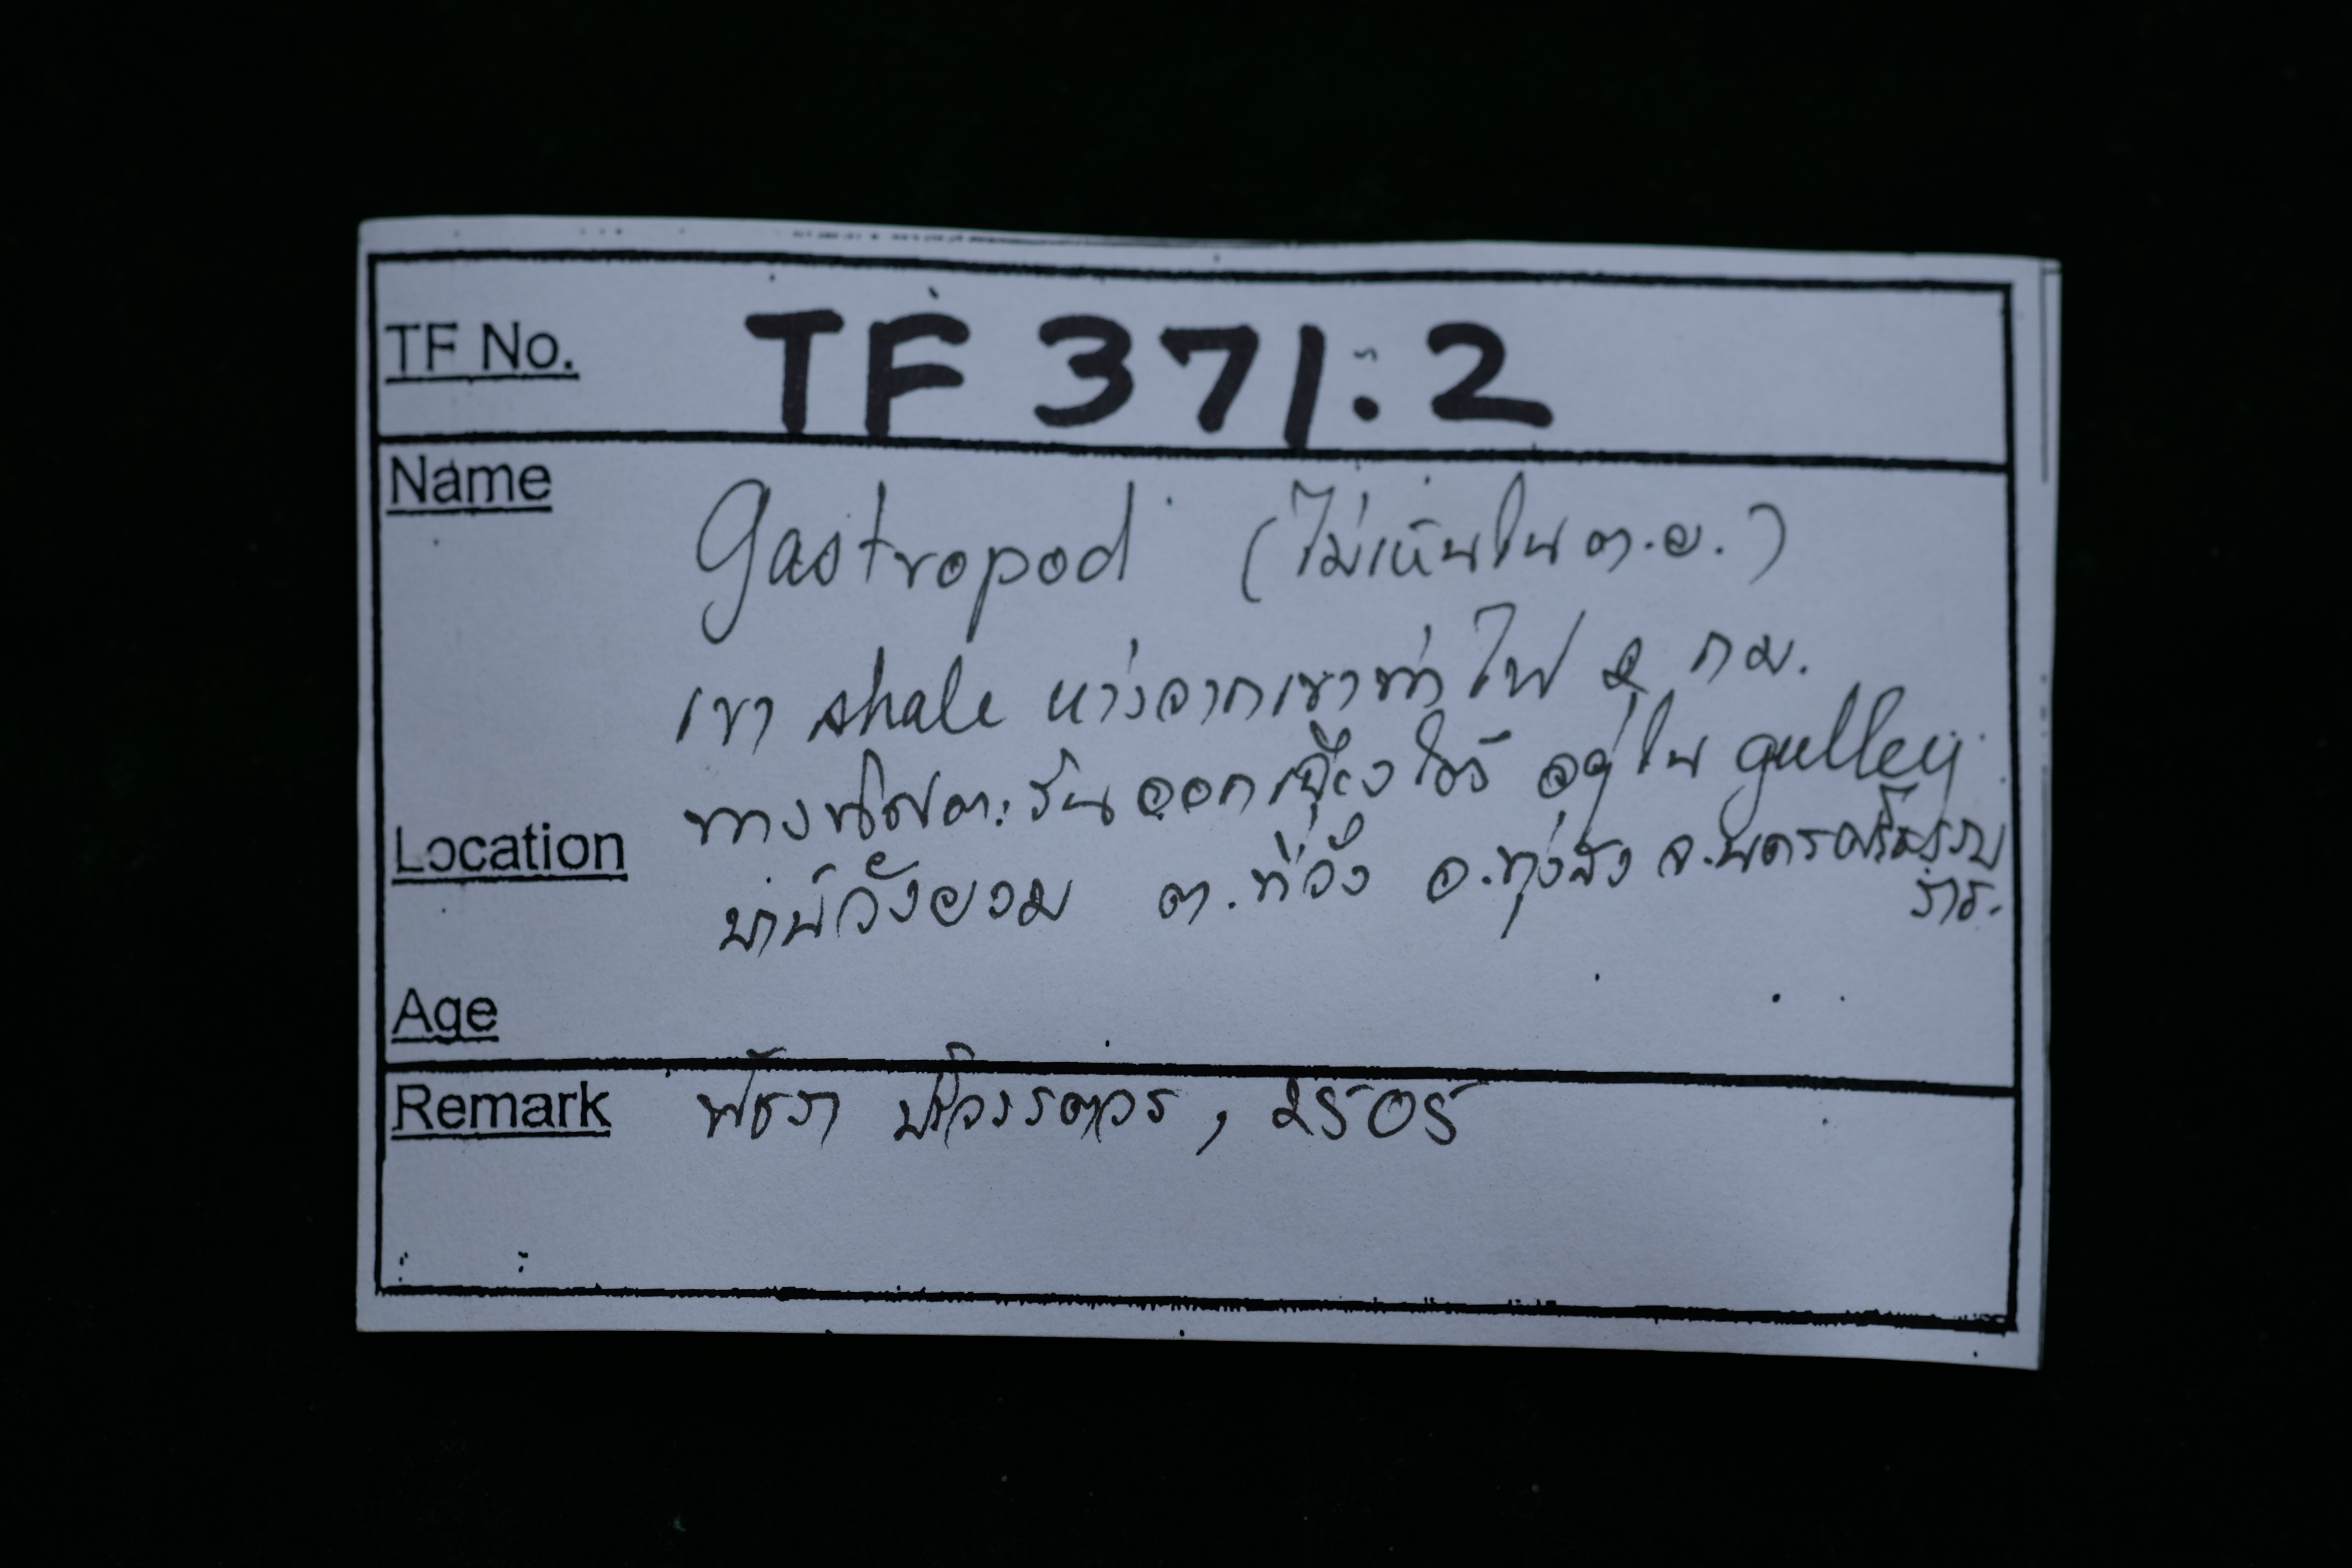 TF No. TF 371.2
Name
Gastropod (ไม่เห็นใน ต.ย.)
เขา shale ห่างจากเขาท่าไฟ 2 กม.
ทางทิศตะวันออกเฉียงใต้ อยู่ใน gulley
Location
บ้านวังยวม ต.ที่วัง อ.ทุ่งสง จ.นครศรีธรรม
ราช.
Age
Remark พัชรา , 2505